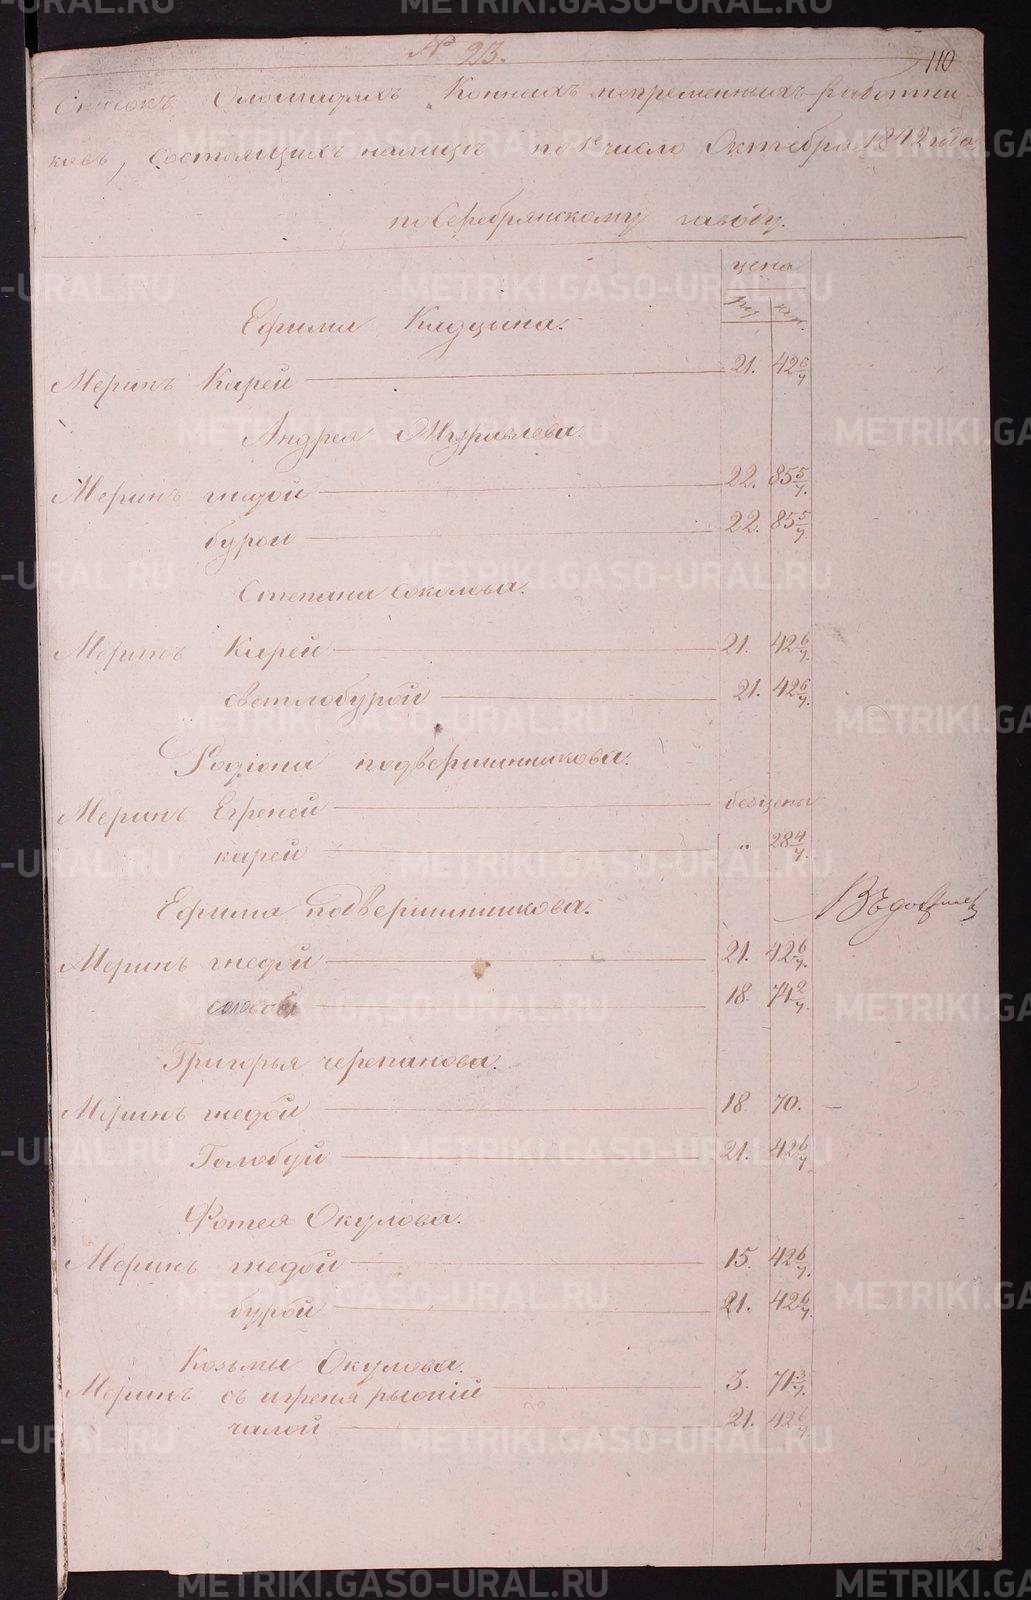 № 23.
110
Списокъ О лошадяхъ Конныхъ непременныхъ работни
ковъ, состоящихъ налицъ по 1е число Октября 1842 года
по Серебрянскому заводу.
цена
руб коп.
Ефима Кадцына.
Меринъ Карей 21. 42 6/7
Андрея Журавлева.
Меринъ гнедой 22. 85 5/7.
бурой 22. 85 5/7.
Степана Соколова.
Меринъ Карей 21. 42 6/7.
светлобурой 21. 42 6/7.
Родіона подвершинникова.
Меринъ Егреней безцены
карей " 28 4/7.
Ефима подвершинникова.
Меринъ гнедой 21. 42 6/7.
соловой 18. 74 2/7.
Григорья черепанова.
Меринъ гнедой 18. 70. —
Голобуй 21. 42 6/7
Фотея Окулова.
Меринъ гнедой 15. 42 6/7.
бурой 21. 42 6/7.
Козьмы Окулова.
Меринъ съ игреня рыжій 3. 71 3/7.
чалой 21. 42 6/7
METRIKI.GASO-URAL.RU